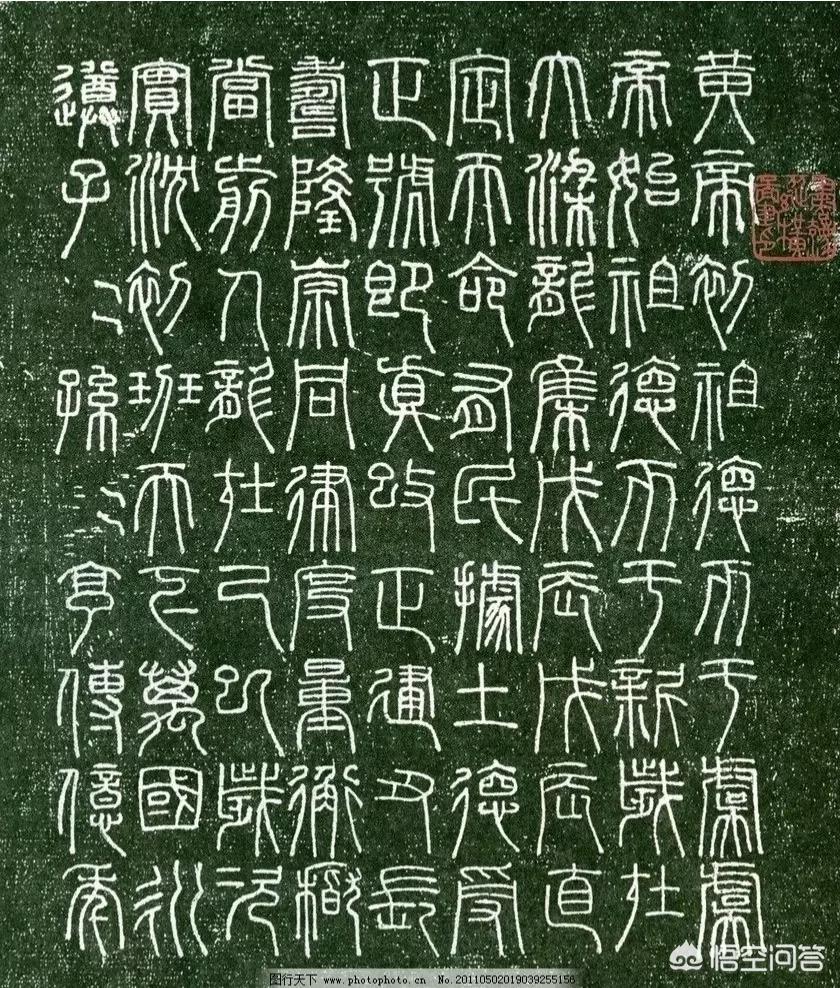 黄帝初祖德帀于虞虞
帝始祖德帀于新歲在
大梁龍集戊辰戊辰直
定天命有民據土德受
正號即真改正建丑長
壽隆崇同律度量衡稽
當前人龍在己巳歲次
實沈初班天下萬國永
遵子〻孫〻享傳億年
悟空问答
图行天下 www.photophoto.cn No.20110502019039255156